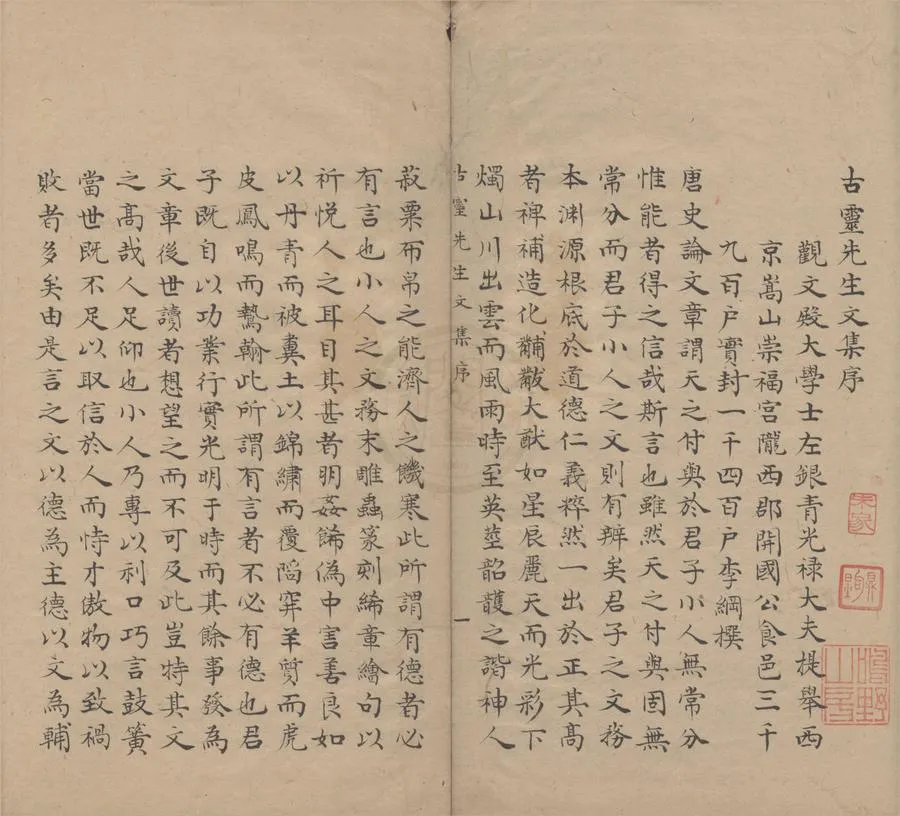 古靈先生文集序
觀文殿大學士左銀青光禄大夫提舉西
京嵩山崇福宮隴西郡開國公食邑三千
九百户實封一千四百户李綱撰
唐史論文章謂天之付與於君子小人無常分
惟能者得之信哉斯言也雖然天之付與固無
常分而君子小人之文則有辨矣君子之文務
本淵源根底於道德仁義粹然一出於正其高
者裨補造化黼黻大猷如星辰麗天而光彩下
燭山川出雲而風雨時至英莖韶頀之諧神人
古靈先生文集序
一
菽粟布帛之能濟人之饑寒此所謂有德者必
有言也小人之文務末雕蟲篆刻絺章繪句以
祈悦人之耳目其甚者朋姦餙偽中害善良如
以丹青而被糞土以錦繡而覆陷穽羊質而虎
皮鳳鳴而鷙翰此所謂有言者不必有德也君
子既自以功業行實光明于時而其餘事發為
文章後世讀者想望之而不可及此豈特其文
之髙哉人足仰也小人乃專以利口巧言鼓簧
當世既不足以取信於人而恃才傲物以致禍
敗者多矣由是言之文以德為主德以文為輔